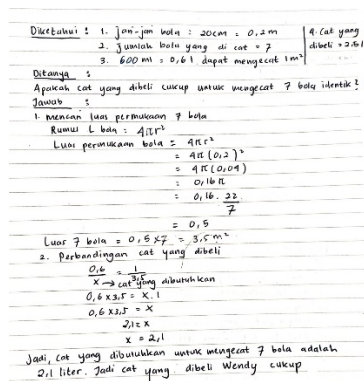 Diketahui : 1. Jari-jari bola : 20cm = 0,2m
2. Jumlah bola yang di cat = 7
3. 600 ml = 0,6 l dapat mengecat 1m²
4. Cat yang dibeli = 2,5 l
Ditanya :
Apakah cat yang dibeli cukup untuk mengecat 7 bola identik?
Jawab :
1. mencari luas permukaan 7 bola
Rumus L bola : 4πr²
Luas permukaan bola = 4πr²
= 4π (0,2)²
= 4π (0,04)
= 0,16 π
= 0,16 . 22/7
= 0,5
Luas 7 bola = 0,5 x 7 = 3,5 m²
2. Perbandingan cat yang dibeli
0,6/x = 1/3,5
→ cat yang dibutuhkan
0,6 x 3,5 = x . 1
0,6 x 3,5 = x
2,1 = x
x = 2,1
Jadi, cat yang dibutuhkan untuk mengecat 7 bola adalah
2,1 liter. Jadi cat yang dibeli Wendy cukup